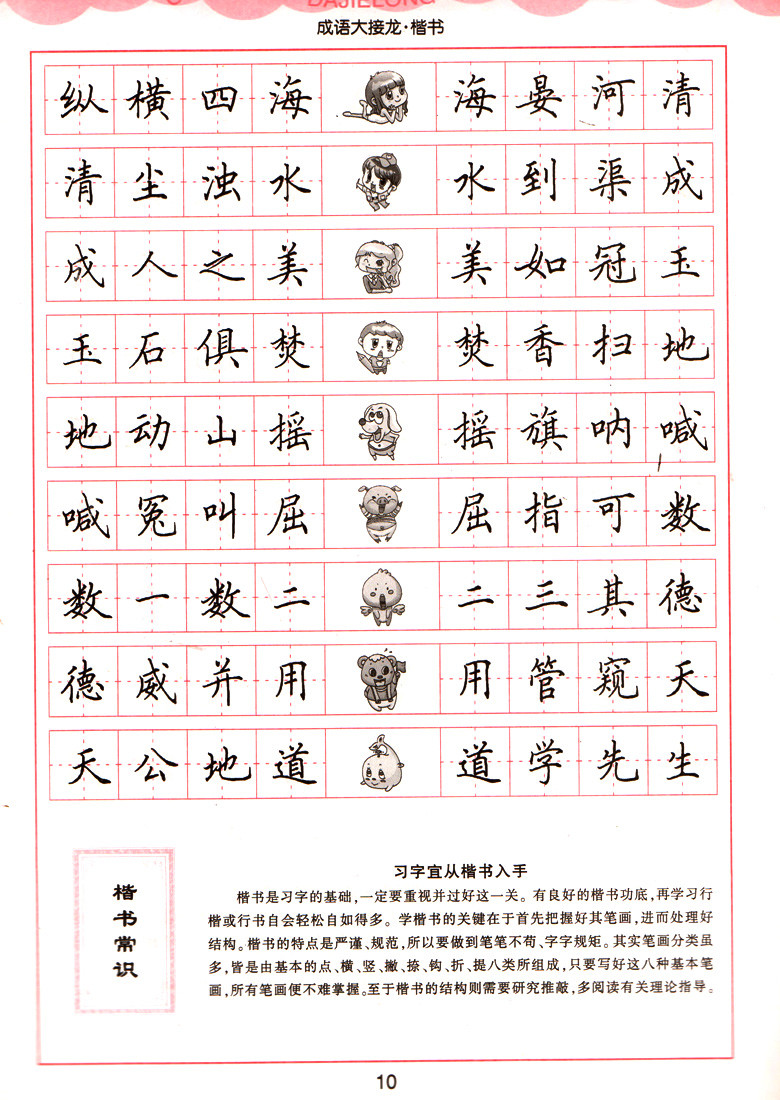 DAJIELONG
成语大接龙·楷书
纵横四海 海晏河清
清尘浊水 水到渠成
成人之美 美如冠玉
玉石俱焚 焚香扫地
地动山摇 摇旗呐喊
喊冤叫屈 屈指可数
数一数二 二三其德
德威并用 用管窥天
天公地道 道学先生
楷书常识
习字宜从楷书入手
楷书是习字的基础,一定要重视并过好这一关。有良好的楷书功底,再学习行
楷或行书自会轻松自如得多。学楷书的关键在于首先把握好其笔画,进而处理好
结构。楷书的特点是严谨、规范,所以要做到笔笔不苟、字字规矩。其实笔画分类虽
多,皆是由基本的点、横、竖、撇、捺、钩、折、提八类所组成,只要写好这八种基本笔
画,所有笔画便不难掌握。至于楷书的结构则需要研究推敲,多阅读有关理论指导。
10